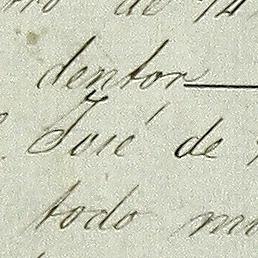 de 14
dentor
José de
todo